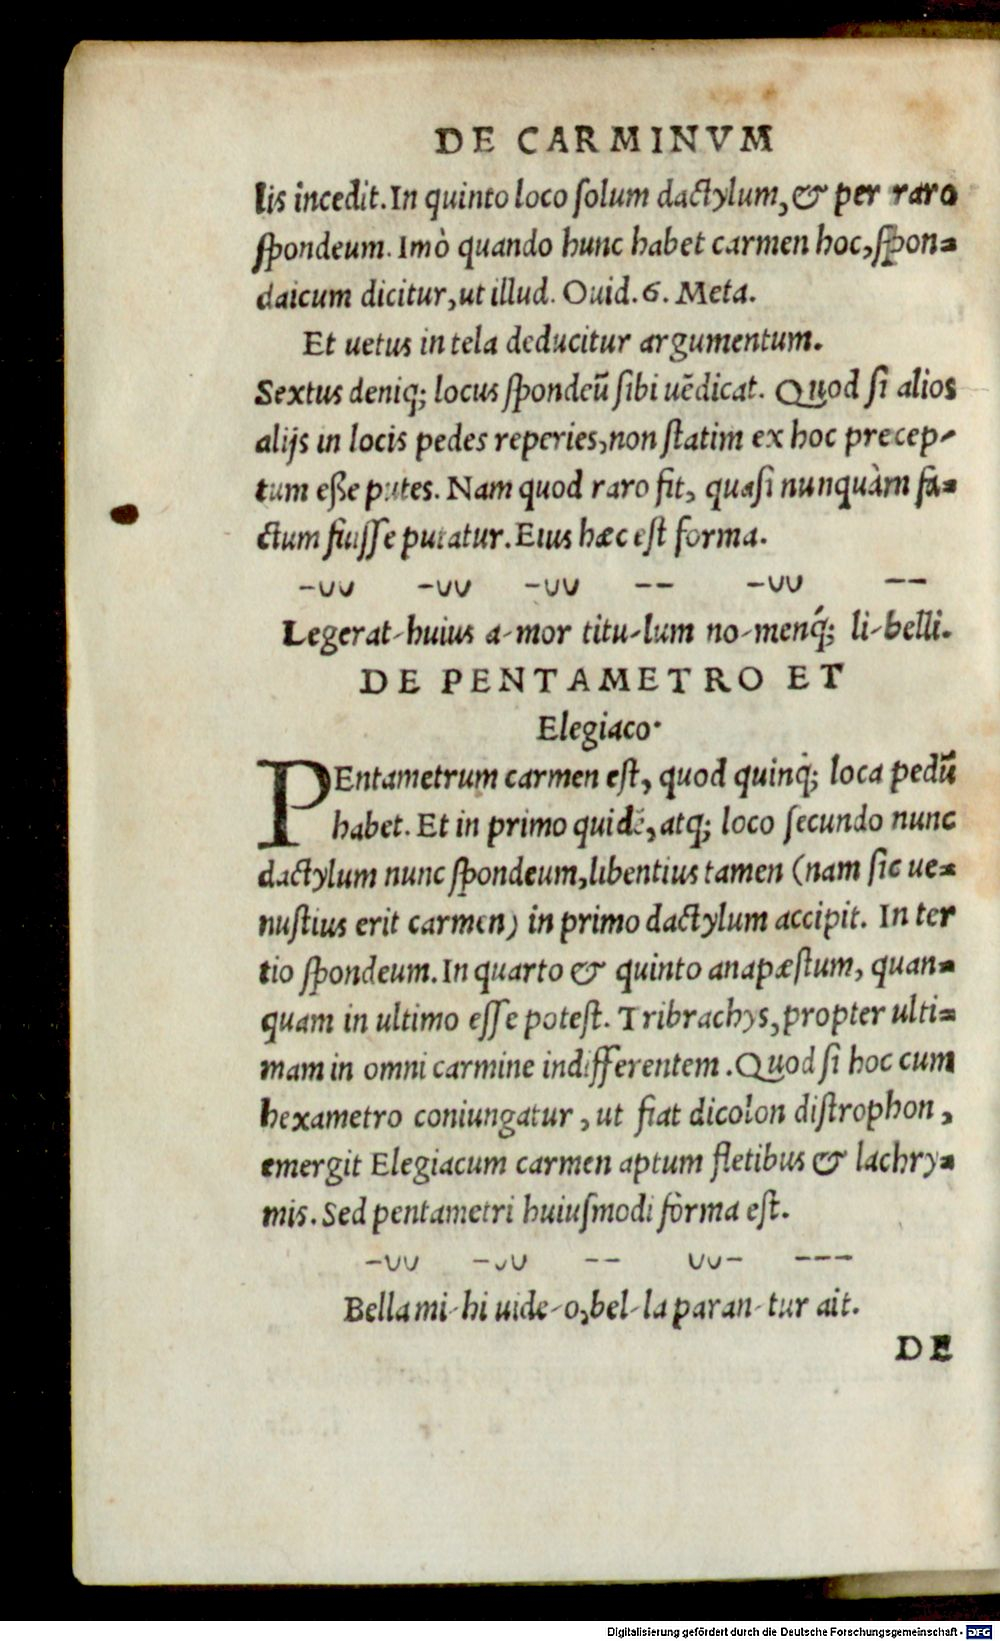 DE CARMINVM
lis incedit. In quinto loco ſolum dactylum, & per raro
ſpondeum. Imò quando hunc habet carmen hoc, ſpon=
daicum dicitur, ut illud. Ouid. 6. Meta.
Et uetus in tela deducitur argumentum.
Sextus deniq; locus ſpondeū ſibi uēdicat. Quod ſi alios
alijs in locis pedes reperies, non ſtatim ex hoc precep-
tum eße putes. Nam quod raro fit, quaſi nunquàm fa=
ctum fuiſſe putatur. Eius hæc eſt forma.
-∪∪ -∪∪ -∪∪ -- -∪∪ --
Legerat-huius a-mor titu-lum no-menq́; li-belli.
DE PENTAMETRO ET
Elegiaco.
PEntametrum carmen eſt, quod quinq; loca pedū
habet. Et in primo quidē, atq; loco ſecundo nunc
dactylum nunc ſpondeum, libentius tamen (nam ſic ue=
nuſtius erit carmen) in primo dactylum accipit. In ter
tio ſpondeum. In quarto & quinto anapæſtum, quan=
quam in ultimo eſſe poteſt. Tribrachys, propter ulti=
mam in omni carmine indifferentem. Quod ſi hoc cum
hexametro coniungatur, ut fiat dicolon diſtrophon,
emergit Elegiacum carmen aptum fletibus & lachry=
mis. Sed pentametri huiuſmodi forma eſt.
-∪∪ -∪∪ -- ∪∪- ---
Bella mi-hi uide-o, bel-la paran-tur ait.
DE
Digitalisierung gefördert durch die Deutsche Forschungsgemeinschaft - DFG